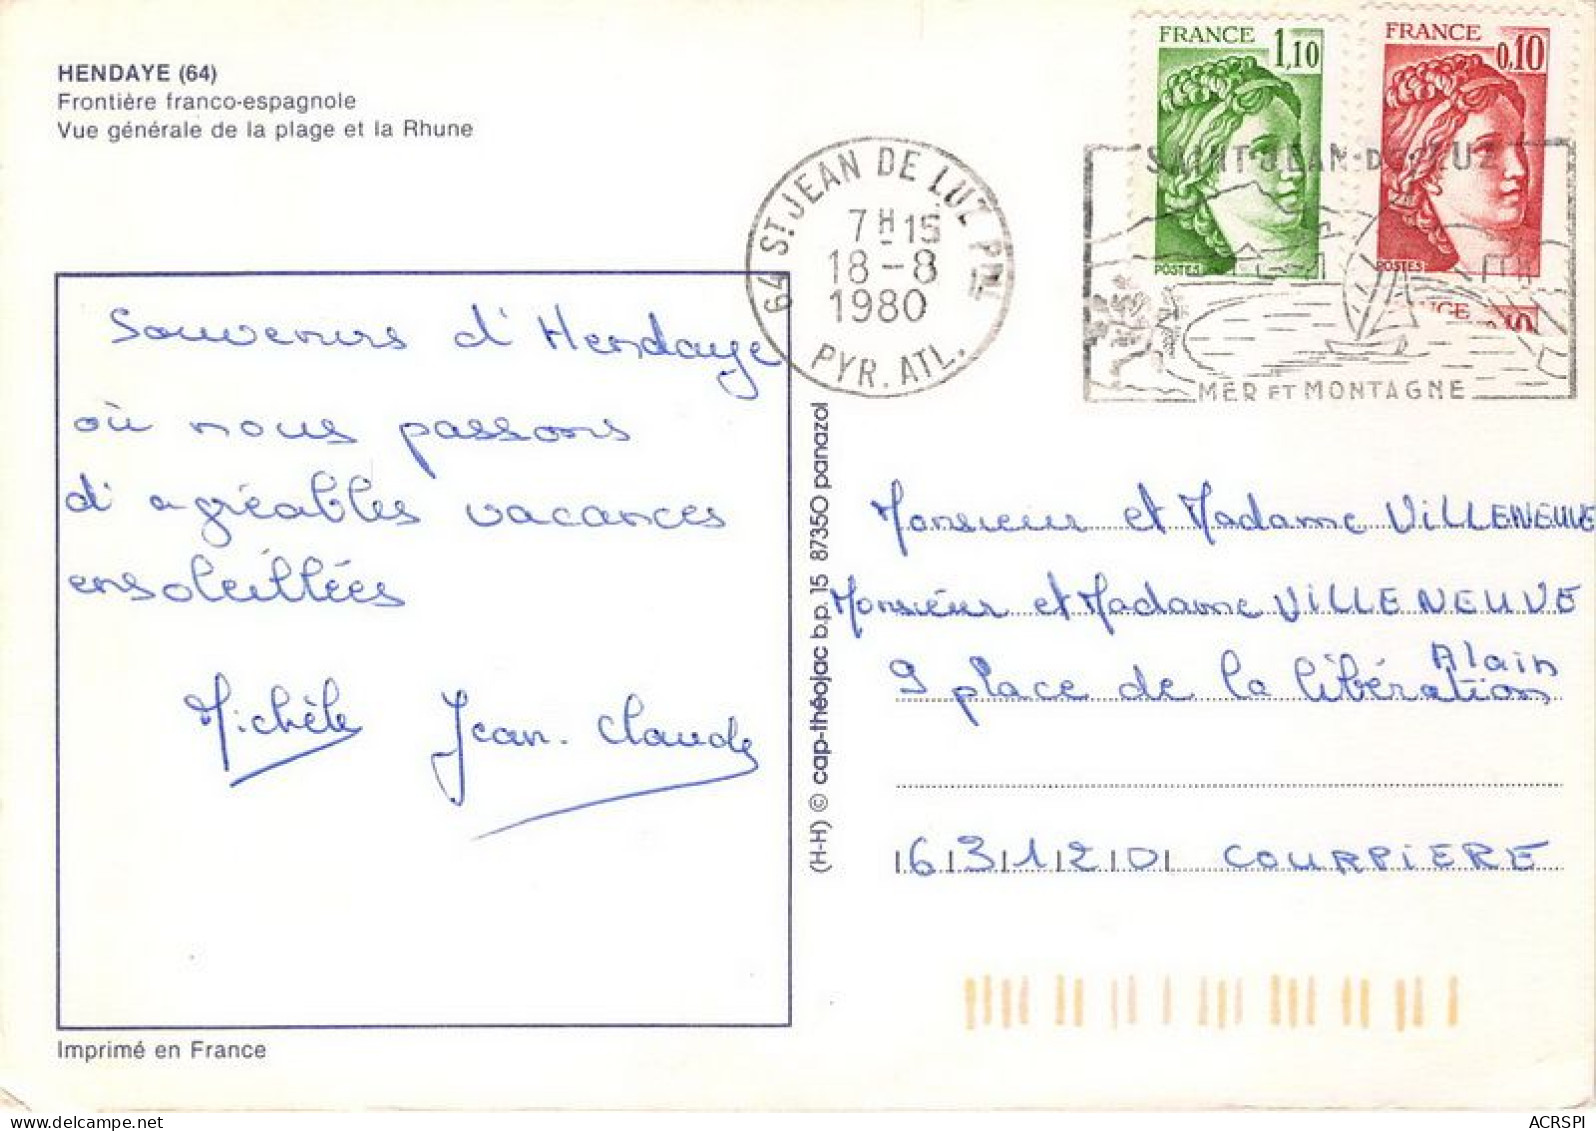 HENDAYE (64)
Frontière franco-espagnole
Vue générale de la plage et la Rhune
FRANCE
1,10
POSTES
FRANCE
0,10
POSTES
64 ST JEAN DE LUZ PPAL
7H-15
18-8
1980
PYR. ATL.
SAINT-JEAN-DE-LUZ
MER ET MONTAGNE
Souvenirs d'Hendaye
où nous passons
d'agréables vacances
ensoleillées
Michèle Jean-Claude
(H-H) © cap-théojac b.p. 15 87350 panazol
Monsieur et Madame ViLLENEUVE
Monsieur et Madame VILLENEUVE
Alain
9 place de la libération
63120 COURPIERE
Imprimé en France
ACRSPI